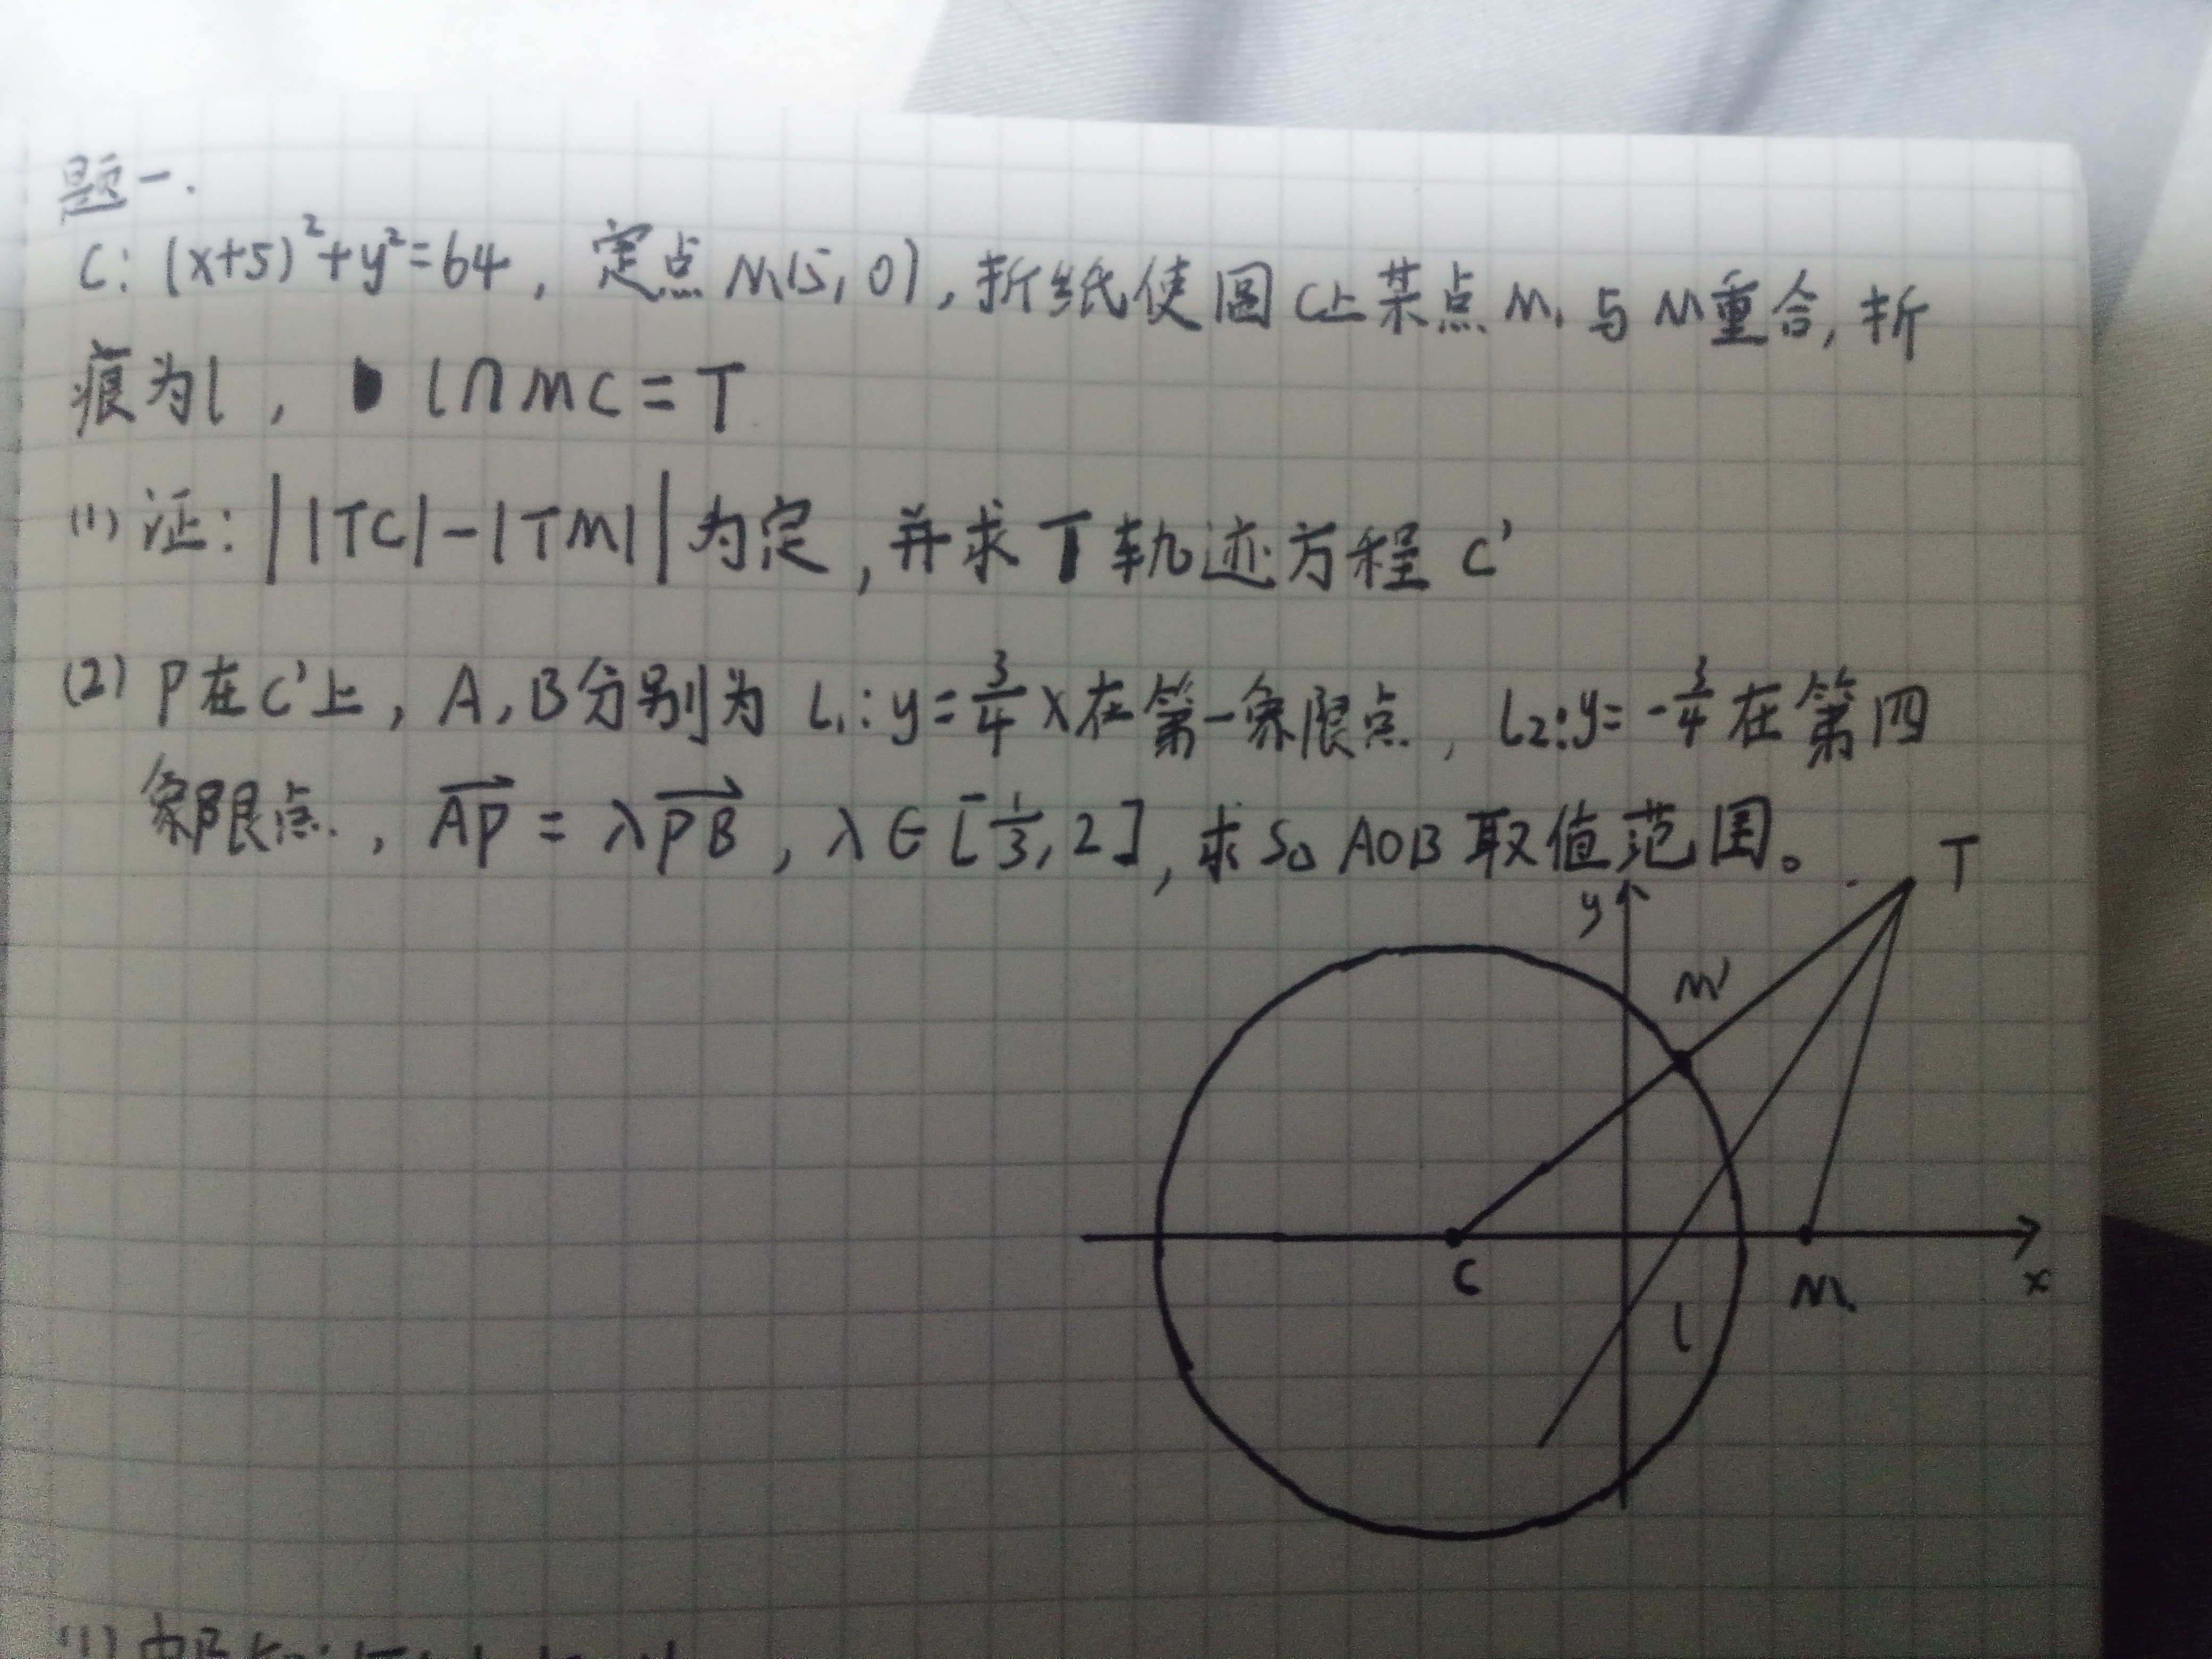 题一.
C: (x+5)²+y²=64, 定点M(5,0), 折纸使圆C上某点M₁与M重合, 折
痕为l, l∩MC=T
(1) 证: ||TC|-|TM||为定, 并求T轨迹方程C'
(2) P在C'上, A,B分别为 L₁:y=3/4x在第一象限点, L₂:y=-3/4在第四
象限点, AP→=λPB→, λ∈[1/3,2], 求S△AOB取值范围。
T
y
M'
C
M
x
l
(1)